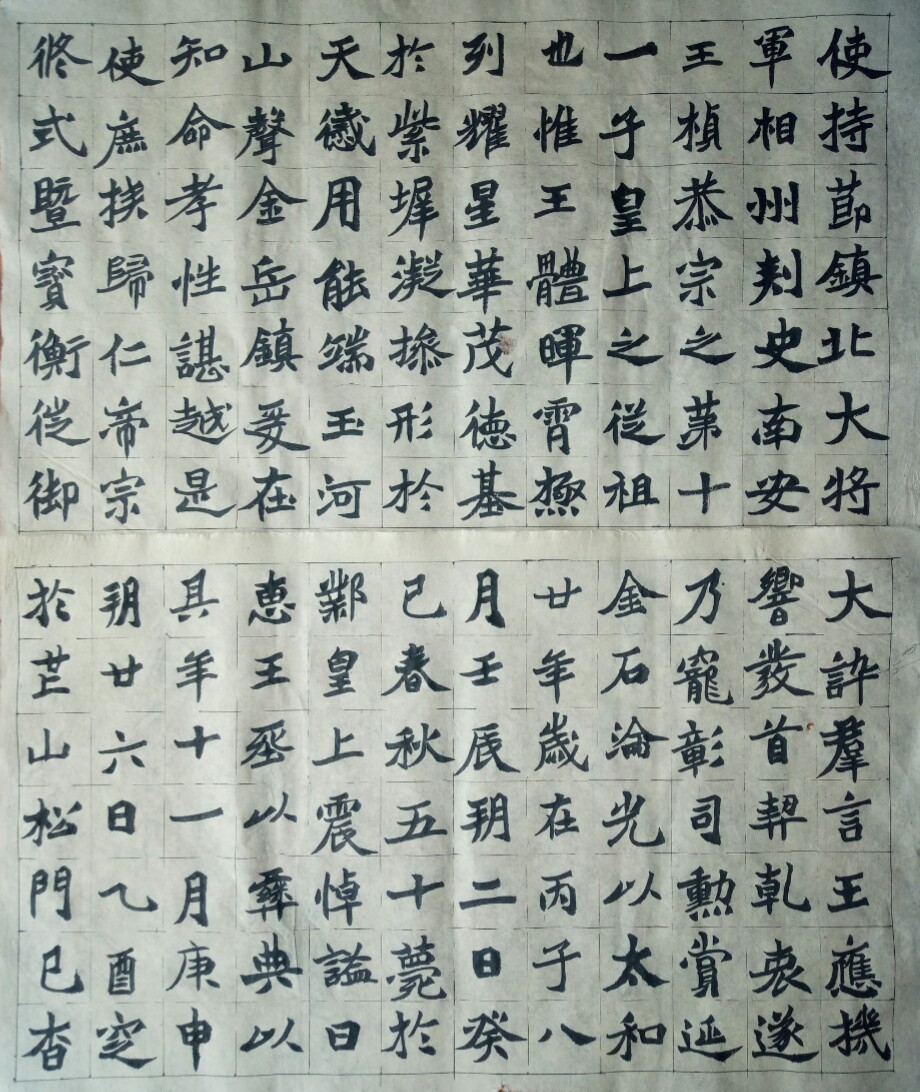 使持節鎮北大将
軍相州刾史南安
王楨恭宗之苐十
一子皇上之従祖
也惟王體暉霄極
列耀星華茂徳基
於紫墀凝操形於
天感用能端玉河
山聲金岳鎮爰在
知命孝性諶越是
使庶族歸仁帝宗
攸式暨寳衡徙御
大訊羣言王應機
響發首契乹衷遂
乃寵彰司勳賞延
金石淪光以太和
廿年歲在丙子八
月壬辰朔二日癸
巳春秋五十薨於
鄴皇上震悼謚曰
恵王葬以彝典以
其年十一月庚申
朔廿六日乙酉窆
於芒山松門已杳